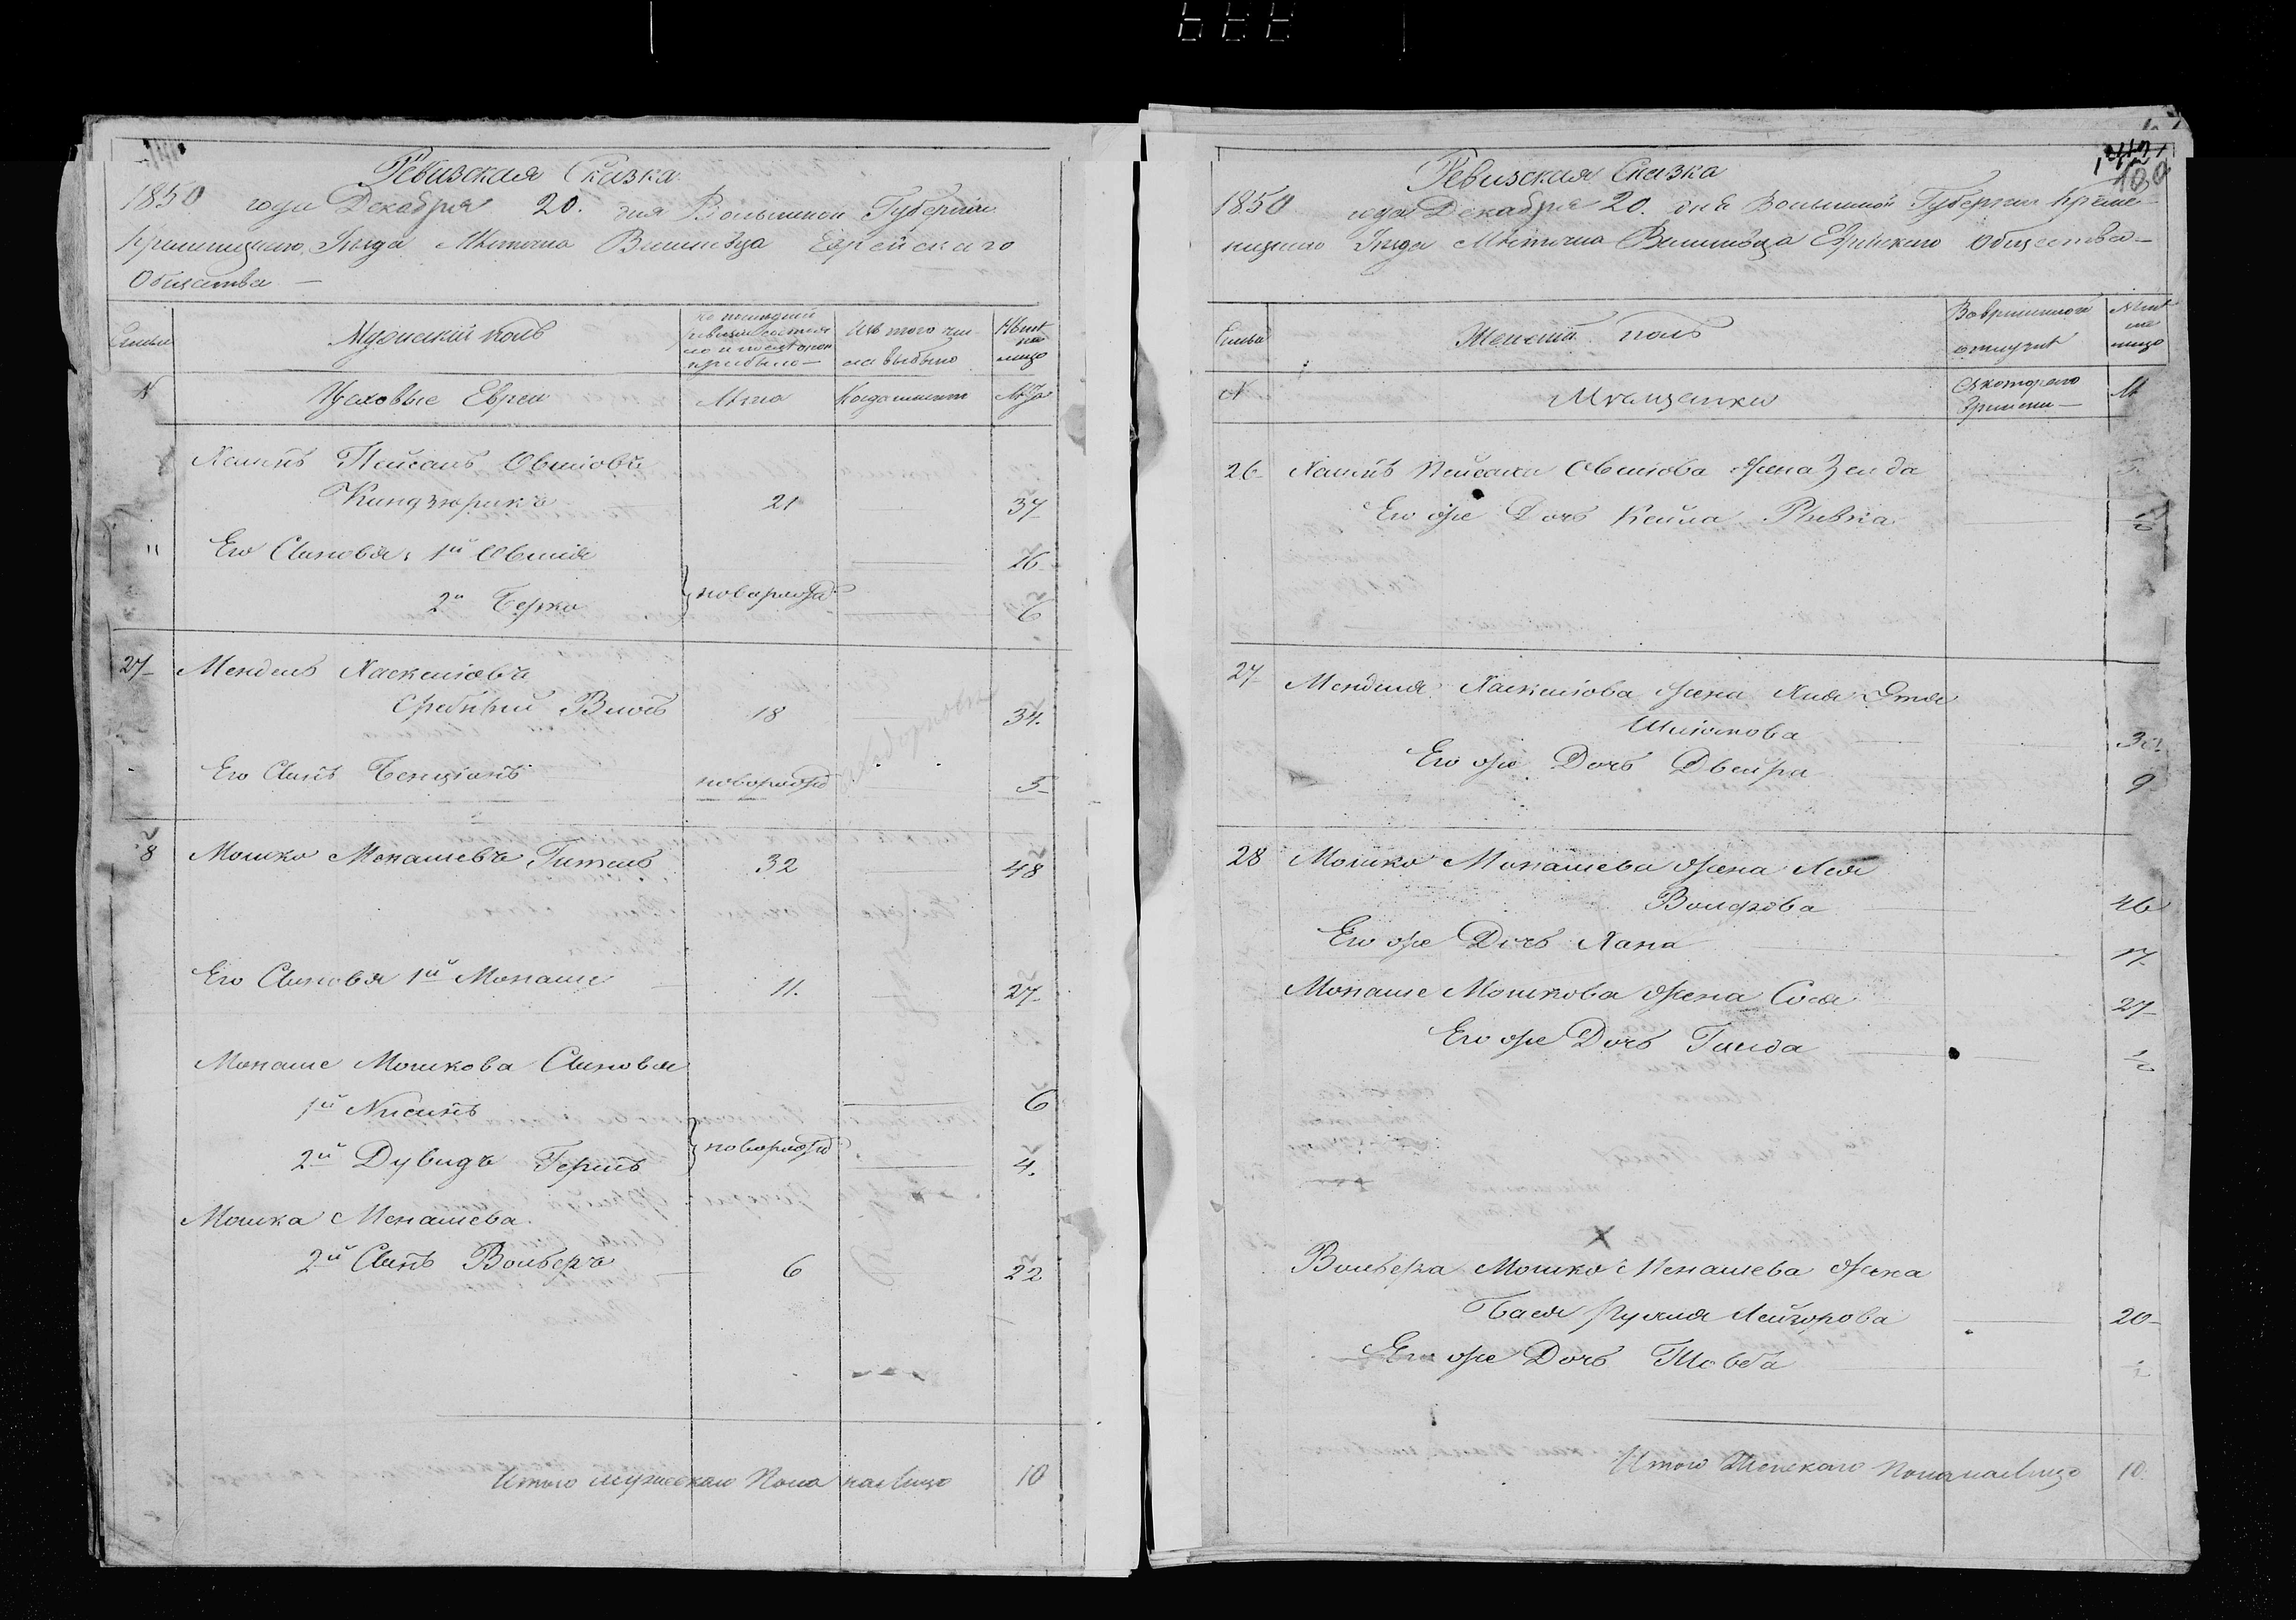 Ревизская Сказка
1850 года Декабря 20. дня Волынской Губернии
Кременецкого Уезда Местечка Вишнёвца Еврейскаго
Общества —
Семьи
Мужеский полъ
Изъ того числа выбыло
Ныне на лицо
№
Цеховые Евреи
Лета
Когда именно
Лета
Хаимъ Пейсахъ Овшіовъ
21
37
" Его Сыновья: 1й Овшія
16
2й Берко
новорожд
6
27 Мендель Хаскеліовъ
18
34.
Его Сынъ Бенціонъ
новорожд
5
28 Мошко Менашевъ Гитель
32
48
Его Сыновья 1й Монаше
11.
27
Монаше Мошкова Сыновья
1й Нисинъ
6
2й Дувидъ Гершъ
новорожд
4.
Мошка Менашева
2й Сынъ Вольверъ
6
22
Итого мужескаго Пола на лицо 10
Ревизская Сказка
1850 года Декабря 20. дня Волынской Губернии Кременецкого Уезда Местечка Вишнёвца Еврейского Общества —
Семьи
Женский полъ
Во временной отлучке
Ныне на лицо
№
Мещанки
Съ котораго времени
Л
26 Хаимъ Пейсаха Овшіова жена Зелда
Его же Дочь Кейла Ривка
27 Менделя Хаскеліова жена Хия Этля
Его же Дочь Двейра
9
28 Мошко Монашева жена Лея
Волфова
46
Его же Дочь Хана
17
Монаше Мошкова жена Сося
27
Его же Дочь Гинда
Вольвера Мошко Менашева жена
Бася Рухля Лейзорова
20
Его же Дочь Товба
Итого Женскаго пола на лицо 10.